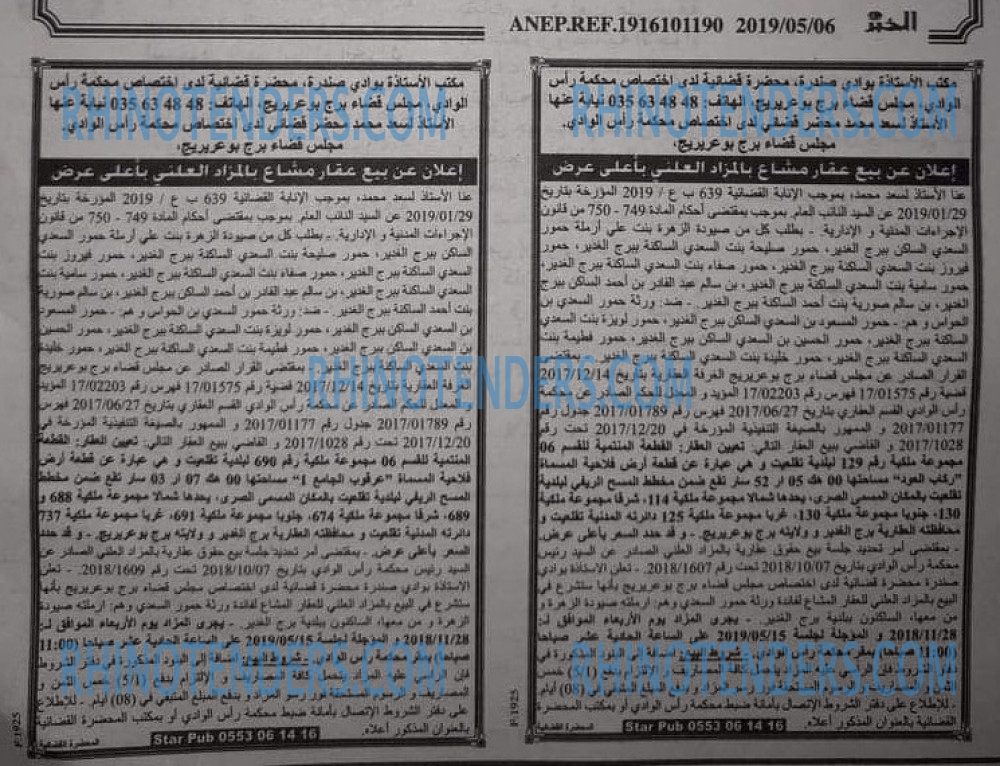 ANEP.REF.1916101190 2019/05/06 الخبر
مكتب الأستاذة بوادي صندرة، محضرة قضائية لدى اختصاص محكمة رأس
الوادي، مجلس قضاء برج بوعريريج، الهاتف: 48 48 63 035 نيابة عنها
الأستاذ لسعد محمد، محضر قضائي لدى اختصاص محكمة رأس الوادي،
مجلس قضاء برج بوعريريج،
إعلان عن بيع عقار مشاع بالمزاد العلني بأعلى عرض
عنا الأستاذ لسعد محمد، بموجب الإنابة القضائية 639 ب ع / 2019 المؤرخة بتاريخ
2019/01/29 عن السيد النائب العام. بموجب بمقتضى أحكام المادة 749 - 750 من قانون
الإجراءات المدنية و الإدارية. - بطلب كل من صيودة الزهرة بنت علي أرملة حمور
السعدي الساكن ببرج الغدير، حمور صليحة بنت السعدي الساكنة ببرج الغدير، حمور
فيروز بنت السعدي الساكنة ببرج الغدير، حمور صفاء بنت السعدي الساكنة ببرج الغدير،
حمور سامية بنت السعدي الساكنة ببرج الغدير، بن سالم عبد القادر بن أحمد الساكن ببرج
الغدير، بن سالم صورية بنت أحمد الساكنة ببرج الغدير. - ضد: ورثة حمور السعدي بن
الحواس و هم: - حمور المسعود بن السعدي الساكن ببرج الغدير، حمور لويزة بنت السعدي
الساكنة ببرج الغدير، حمور الحسين بن السعدي الساكن ببرج الغدير، حمور فطيمة بنت
السعدي الساكنة ببرج الغدير، حمور خليدة بنت السعدي الساكنة ببرج الغدير. - بمقتضى
القرار الصادر عن مجلس قضاء برج بوعريريج الغرفة العقارية بتاريخ 2017/12/14
قضية رقم 17/01575 فهرس رقم 17/02203 المؤيد و المعدل للحكم الصادر عن محكمة
رأس الوادي القسم العقاري بتاريخ 2017/06/27 فهرس رقم 2017/01789 جدول رقم
2017/01177 و الممهور بالصيغة التنفيذية المؤرخة في 2017/12/20 تحت رقم
2017/1028 و القاضي ببيع العقار التالي: تعيين العقار: القطعة المنتمية للقسم 06
مجموعة ملكية رقم 129 لبلدية تقلعيت و هي عبارة عن قطعة أرض فلاحية المسماة
"ركاب العود" مساحتها 00 هك 05 ار 52 سار تقع ضمن مخطط المسح الريفي لبلدية
تقلعيت بالمكان المسمى الصرى، يحدها شمالا مجموعة ملكية 114، شرقا مجموعة ملكية
130، جنوبا مجموعة ملكية 130، غربا مجموعة ملكية 125 دائرته المدنية تقلعيت و
محافظته العقارية برج الغدير و ولايته برج بوعريريج. - و قد حدد السعر بأعلى عرض.
- بمقتضى أمر تحديد جلسة بيع حقوق عقارية بالمزاد العلني الصادر عن السيد رئيس
محكمة رأس الوادي بتاريخ 2018/10/07 تحت رقم 2018/1607. - تعلن الاستاذة بوادي
صندرة محضرة قضائية لدى اختصاص مجلس قضاء برج بوعريريج بأنها ستشرع في
البيع بالمزاد العلني للعقار المشاع لفائدة ورثة حمور السعدي وهم: ارملته صيودة الزهرة و
من معها، الساكنون ببلدية برج الغدير. - يجرى المزاد يوم الأربعاء الموافق لـ:
2018/11/28 و المؤجلة لجلسة 2019/05/15 على الساعة الحادية عشر صباحا
(11:00 صباحا) بمقر محكمة رأس الوادي. شروط البيع: إضافة إلى البنود المذكورة في
- للإطلاع على دفتر الشروط الإتصال بأمانة ضبط محكمة رأس الوادي أو بمكتب المحضرة
القضائية بالعنوان المذكور أعلاه.
المحضرة القضائية
Star Pub 0553 06 14 16
F.1925
مكتب الأستاذة بوادي صندرة، محضرة قضائية لدى اختصاص محكمة رأس
الوادي، مجلس قضاء برج بوعريريج، الهاتف: 48 48 63 035 نيابة عنها
الأستاذ لسعد محمد، محضر قضائي لدى اختصاص محكمة رأس الوادي،
مجلس قضاء برج بوعريريج،
إعلان عن بيع عقار مشاع بالمزاد العلني بأعلى عرض
عنا الأستاذ لسعد محمد، بموجب الإنابة القضائية 639 ب ع / 2019 المؤرخة بتاريخ
2019/01/29 عن السيد النائب العام. بموجب بمقتضى أحكام المادة 749 - 750 من قانون
الإجراءات المدنية و الإدارية. - بطلب كل من صيودة الزهرة بنت علي أرملة حمور السعدي
الساكن ببرج الغدير، حمور صليحة بنت السعدي الساكنة ببرج الغدير، حمور فيروز بنت
السعدي الساكنة ببرج الغدير، حمور صفاء بنت السعدي الساكنة ببرج الغدير، حمور سامية بنت
السعدي الساكنة ببرج الغدير، بن سالم عبد القادر بن أحمد الساكن ببرج الغدير، بن سالم صورية
بنت أحمد الساكنة ببرج الغدير. - ضد: ورثة حمور السعدي بن الحواس و هم: - حمور المسعود
بن السعدي الساكن ببرج الغدير، حمور لويزة بنت السعدي الساكنة ببرج الغدير، حمور الحسين
بن السعدي الساكن ببرج الغدير، حمور فطيمة بنت السعدي الساكنة ببرج الغدير، حمور خليدة
بنت السعدي الساكنة ببرج الغدير. - بمقتضى القرار الصادر عن مجلس قضاء برج بوعريريج
الغرفة العقارية بتاريخ 2017/12/14 قضية رقم 17/01575 فهرس رقم 17/02203 المؤيد
و المعدل للحكم الصادر عن محكمة رأس الوادي القسم العقاري بتاريخ 2017/06/27 فهرس
رقم 2017/01789 جدول رقم 2017/01177 و الممهور بالصيغة التنفيذية المؤرخة في
2017/12/20 تحت رقم 2017/1028 و القاضي ببيع العقار التالي: تعيين العقار: القطعة
المنتمية للقسم 06 مجموعة ملكية رقم 690 لبلدية تقلعيت و هي عبارة عن قطعة أرض
فلاحية المسماة "عرقوب الجامع 1" مساحتها 00 هك 07 ار 03 سار تقع ضمن مخطط
المسح الريفي لبلدية تقلعيت بالمكان المسمى الصرى، يحدها شمالا مجموعة ملكية 688 و
689، شرقا مجموعة ملكية 674، جنوبا مجموعة ملكية 691، غربا مجموعة ملكية 737
دائرته المدنية تقلعيت و محافظته العقارية برج الغدير و ولايته برج بوعريريج. - و قد حدد
السعر بأعلى عرض. - بمقتضى أمر تحديد جلسة بيع حقوق عقارية بالمزاد العلني الصادر عن
السيد رئيس محكمة رأس الوادي بتاريخ 2018/10/07 تحت رقم 2018/1609. - تعلن
الاستاذة بوادي صندرة محضرة قضائية لدى اختصاص مجلس قضاء برج بوعريريج بأنها
ستشرع في البيع بالمزاد العلني للعقار المشاع لفائدة ورثة حمور السعدي وهم: ارملته صيودة
الزهرة و من معها، الساكنون ببلدية برج الغدير. - يجرى المزاد يوم الأربعاء الموافق لـ:
2018/11/28 و المؤجلة لجلسة 2019/05/15 على الساعة الحادية عشر صباحا (11:00
صباحا) بمقر محكمة رأس الوادي. شروط البيع: إضافة إلى البنود المذكورة في دفتر الشروط
المبلغ المتبقي في (08) أيام. - للإطلاع
على دفتر الشروط الإتصال بأمانة ضبط محكمة رأس الوادي أو بمكتب المحضرة القضائية
بالعنوان المذكور أعلاه.
المحضرة القضائية
Star Pub 0553 06 14 16
F.1925
RHINOTENDERS.COM
RHINOTENDERS.COM
RHINOTENDERS.COM
RHINOTENDERS.COM
RHINOTENDERS.COM